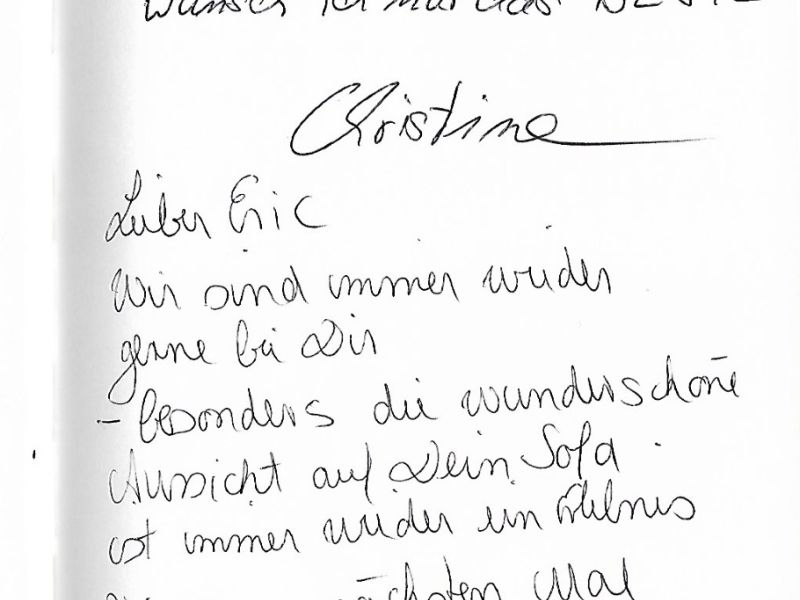 wünsch ich mir das BESTE
Christine
Lieber Eric
Wir sind immer wieder
gerne bei Dir
- besonders die wunderschöne
Aussicht auf Dein Sofa
ist immer wieder ein Erlebnis
nächsten Mal